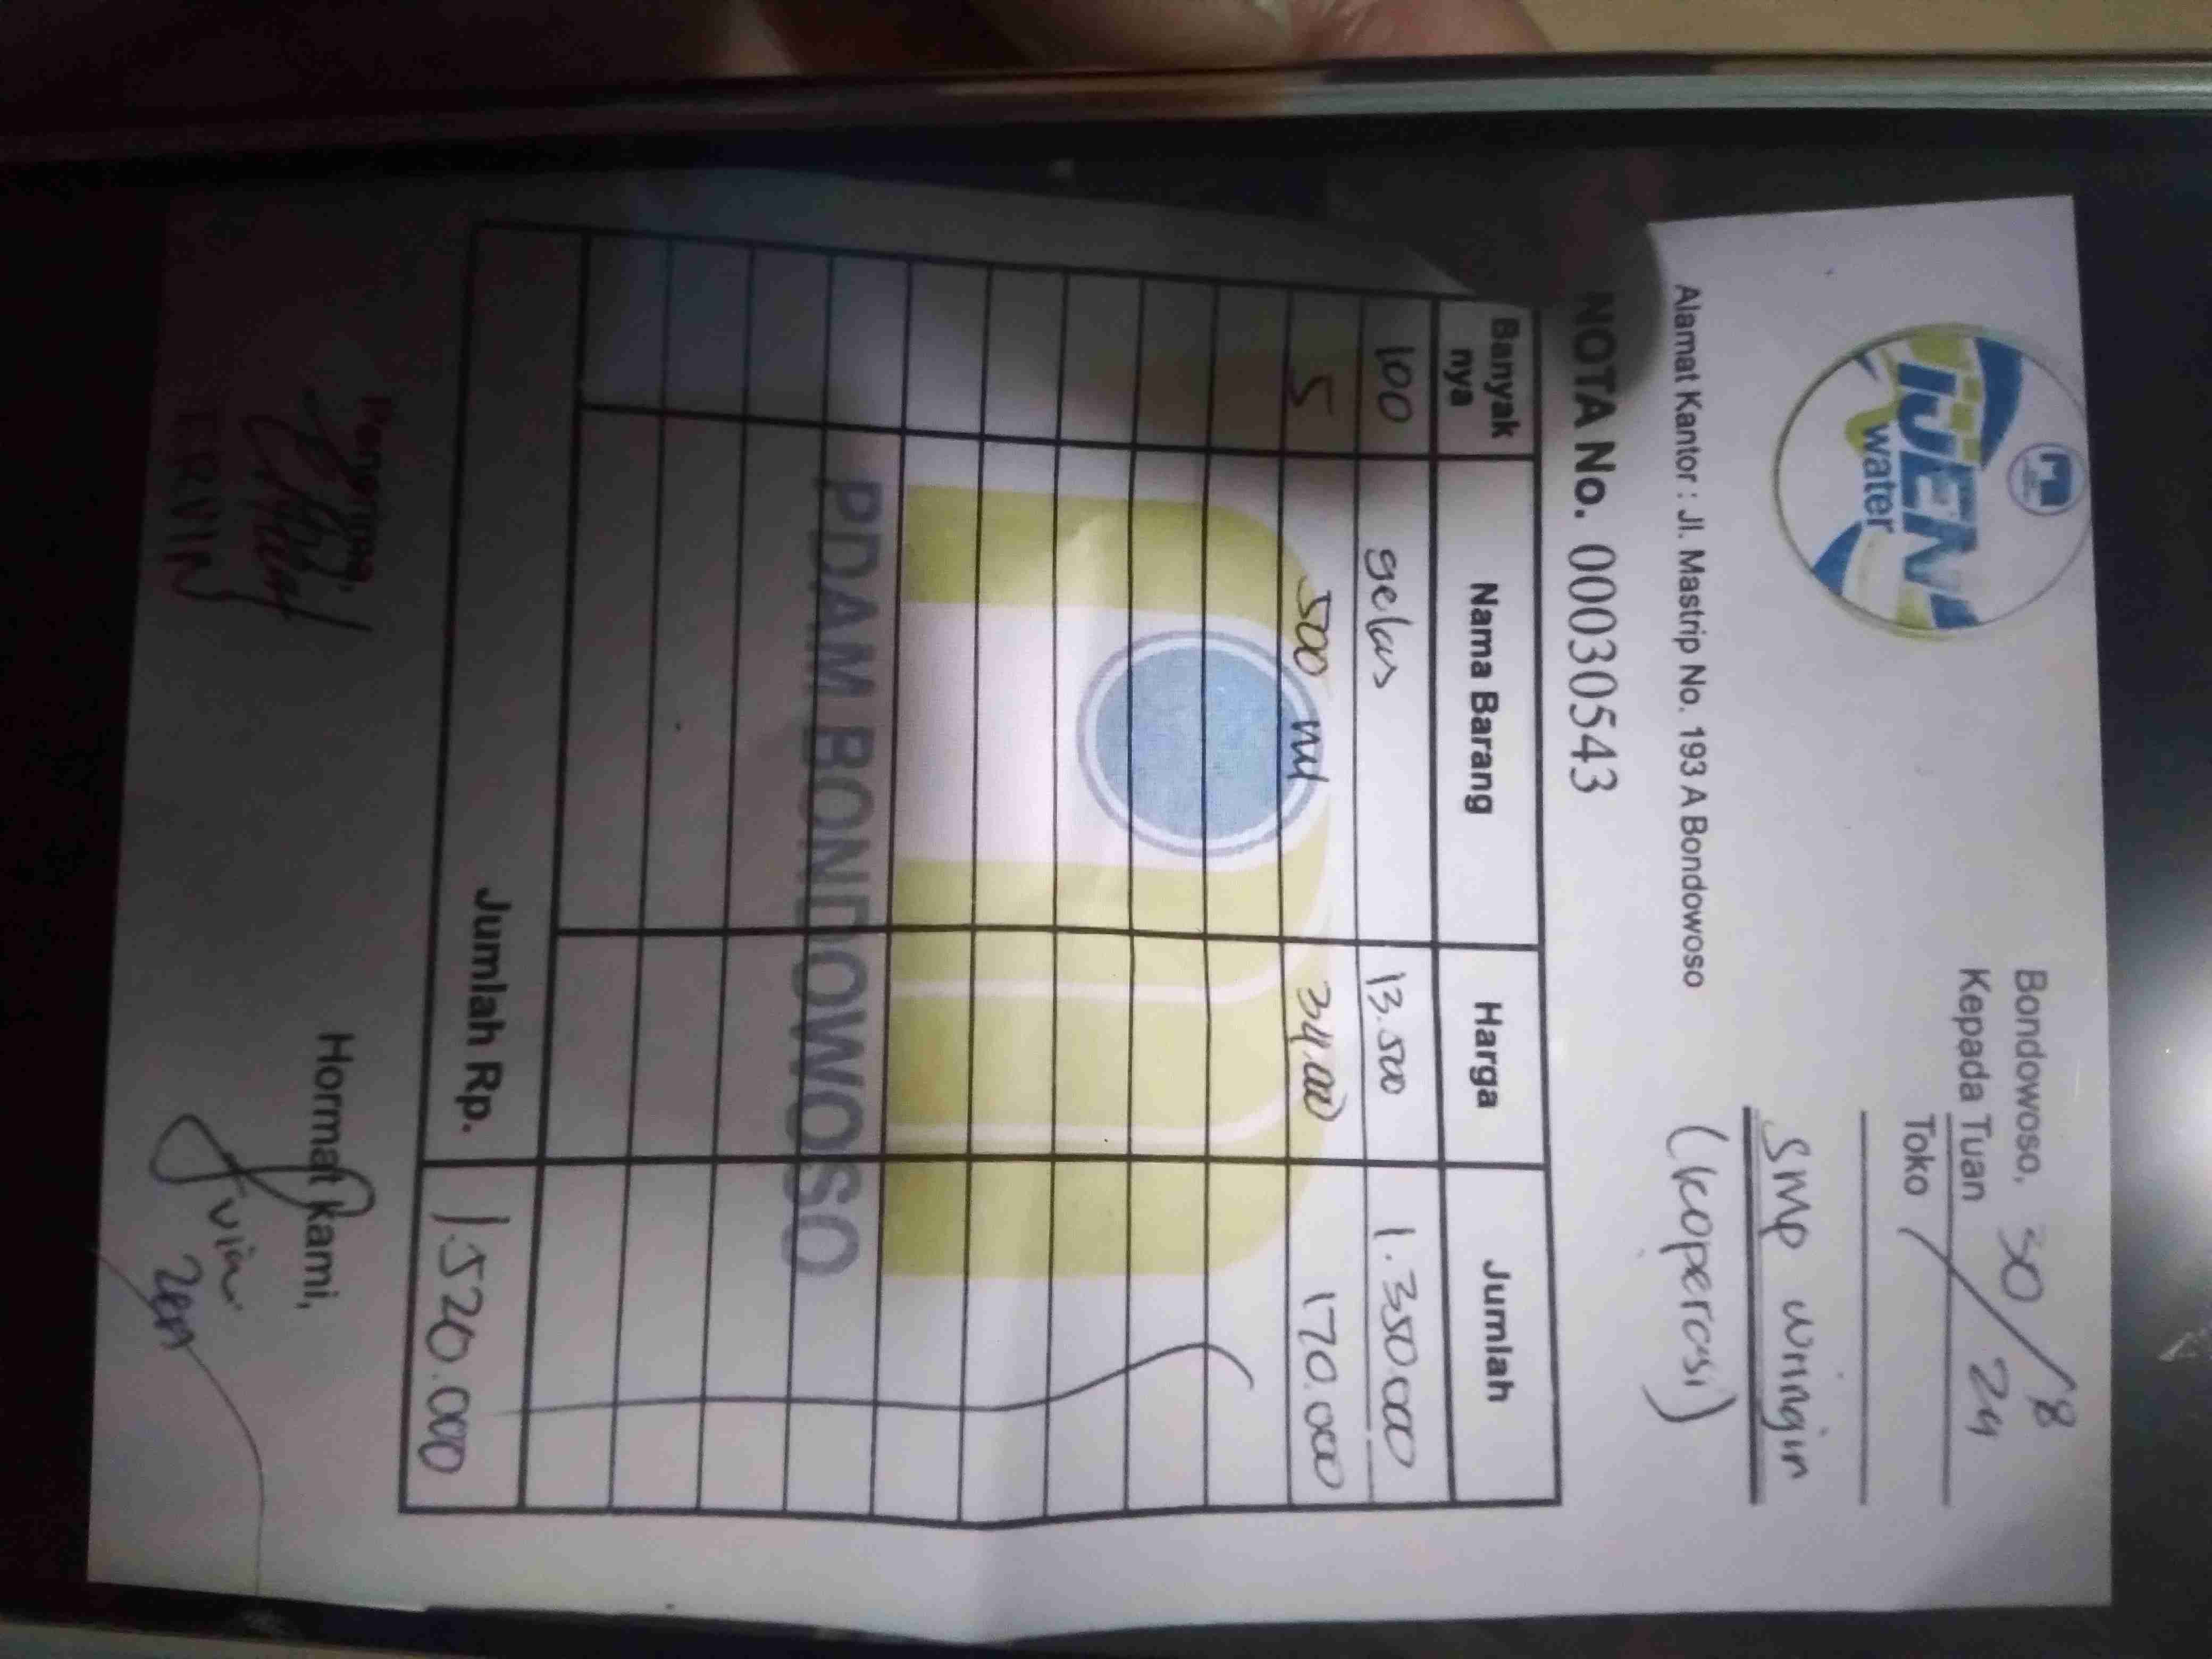 IJEN
water
Bondowoso, 30/8
Kepada Tuan 24
Toko
SMP wringin
(koperasi)
Alamat Kantor : Jl. Mastrip No. 193 A Bondowoso
NOTA No. 00030543
Banyak nya Nama Barang Harga Jumlah
100 gelas 13.500 1.350.000
5 500 ml 34.000 170.000
PDAM BONDOWOSO
Jumlah Rp. 1.520.000
Penerima, Hormat kami,
ERVIN vian